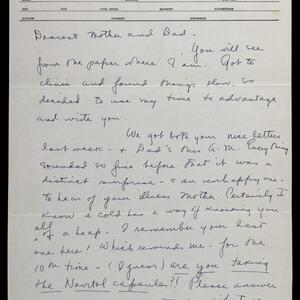 AGE SEX CIVIL STATE
DOCTOR STUDENT
Dearest Mother and Dad.
You will see
from the paper where I am. Got to
clinic and found things slow so
decided to use my time to advantage
and write you.
We got both your nice letters
last week - & Dad's this A.M. Everything
sounded so fine before that it was a
distinct surprise - & an unhappy one -
to hear of your illness Mother. Certainly I
know a cold has a way of knocking you
all of a heap. I remember your last
one here! Which reminds me - for the
10th time - (I guess) are you taking
the Navitol capsules?! Please answer